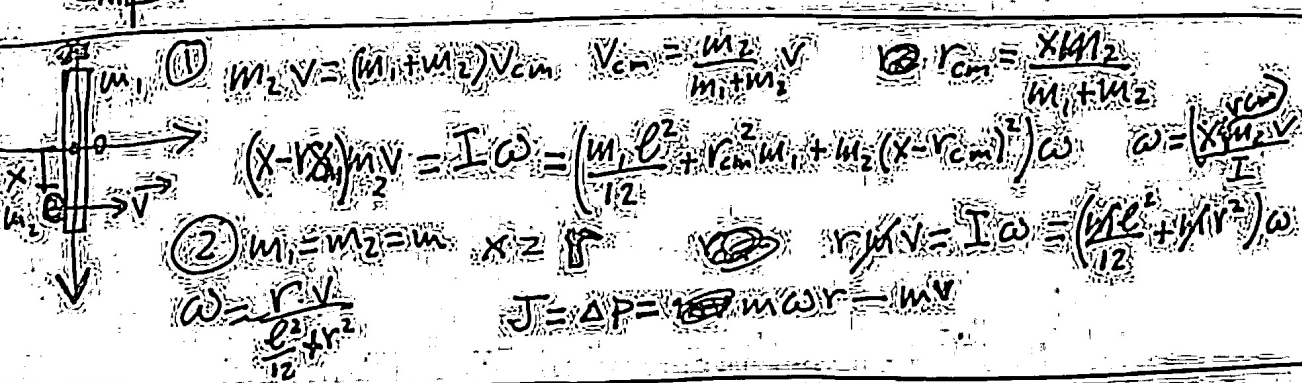 m₁ ① m₂ v = (m₁+m₂) v_cm v_cm = m₂/(m₁+m₂) v r_cm = x m₂/(m₁+m₂)
0
(x - r_cm) m₂ v = I ω = (m₁ l²/12 + r_cm² m₁ + m₂ (x - r_cm)²) ω ω = (x - r_cm) m₂ v / I
x
m₂ v
② m₁ = m₂ = m x = r r m v = I ω = (m l²/12 + m r²) ω
ω = r v / (l²/12 + r²) J = Δp = m ω r - m v